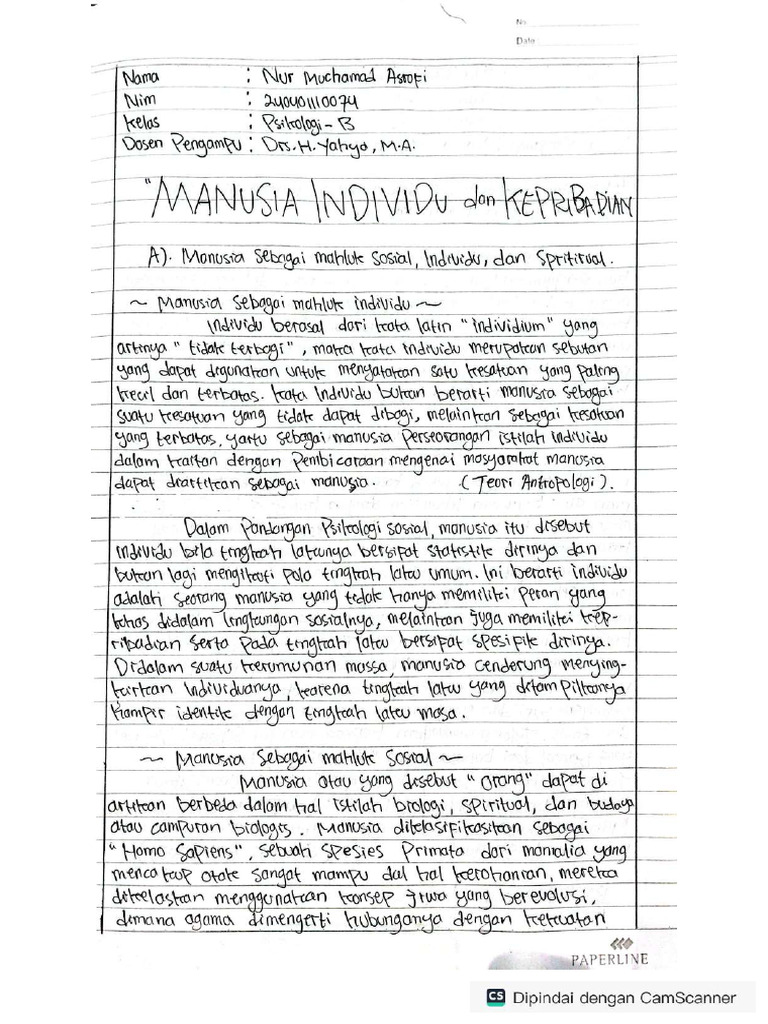 No
Date
Nama : Nur Muchamad Asrofi
Nim : 240401110074
Kelas : Psikologi - B
Dosen Pengampu : Drs. H. Yahya, M.A.
"MANUSIA INDIVIDU dan KEPRIBADIAN
A). Manusia sebagai mahluk sosial, Individu, dan Sprititual.
~ Manusia sebagai mahluk individu ~
Individu berasal dari kata latin "individium" yang
artinya "tidak terbagi", maka kata individu merupakan sebutan
yang dapat digunakan untuk menyatakan satu kesatuan yang paling
kecil dan terbatas. Kata Individu bukan berarti manusia sebagai
suatu kesatuan yang tidak dapat dibagi, melainkan sebagai kesatuan
yang terbatas, yaitu sebagai manusia perseorangan istilah individu
dalam kaitan dengan pembicaraan mengenai masyarakat manusia
dapat diartikan sebagai manusia. (Teori Antropologi).
Dalam Pandangan Psikologi sosial, manusia itu disebut
individu bila tingkah lakunya bersipat statistik dirinya dan
bukan lagi mengikuti pola tingkah laku umum. Ini berarti individu
adalah seorang manusia yang tidak hanya memiliki peran yang
khas didalam lingkungan sosialnya, melainkan juga memiliki kep-
ribadian serta pada tingkah laku bersipat spesipik dirinya.
Didalam suatu kerumunan massa, manusia cenderung menying-
kirkan Individuanya, karena tingkah laku yang ditampilkanya
hampir identik dengan tingkah laku masa.
~ Manusia Sebagai mahluk Sosial ~
Manusia atau yang disebut "orang" dapat di
artikan berbeda dalam hal istilah biologi, spiritual, dan budaya
atau campuran biologis. Manusia diklasifikasikan sebagai
"Homo Sapiens", sebuah spesies primata dari mamalia yang
mencakup otak sangat mampu dal hal kerohanian, mereka
dikelaskan menggunakan konsep jiwa yang berevolusi,
dimana agama dimengerti hubunganya dengan kekuatan
PAPERLINE
CS Dipindai dengan CamScanner